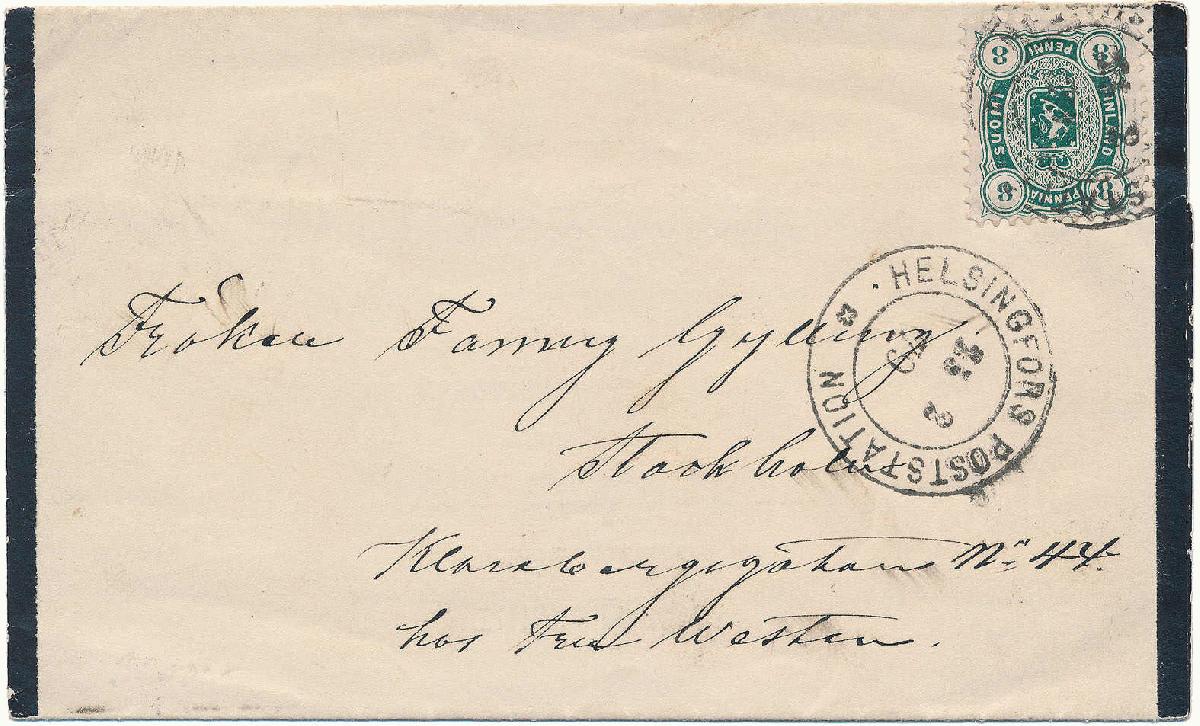 8 PENNI 8
SUOMI FINLAND
8 PENNIÄ 8
HELSINGFORS POSTSTATION
13
2
Fröken Fanny Gylling.
Stockholm
Klarabergsgatan No 44.
hos Fru Westen.